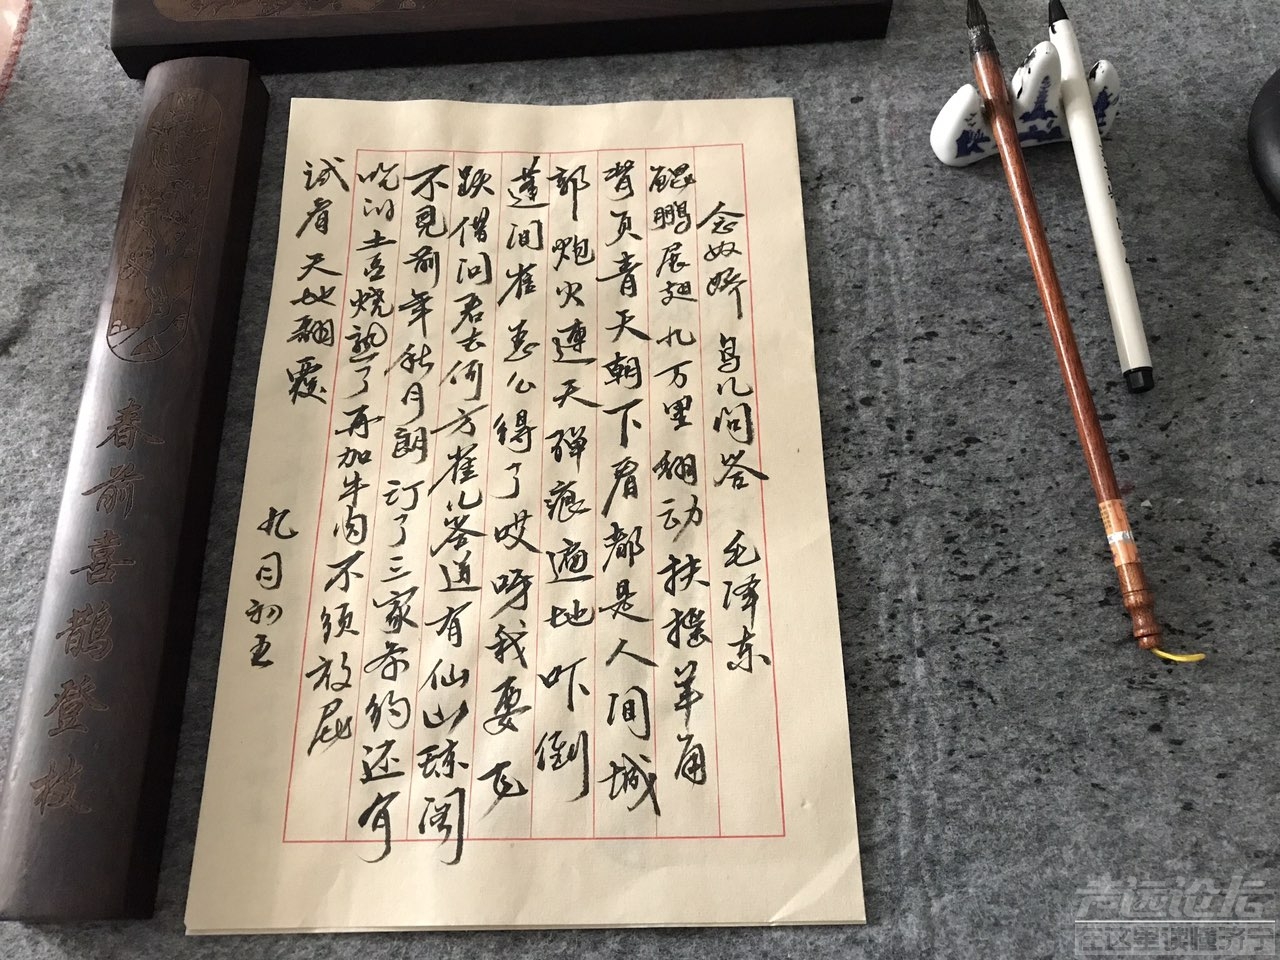 念奴娇 鸟儿问答 毛泽东
鲲鹏展翅九万里翻动扶摇羊角
背负青天朝下看都是人间城
郭炮火連天弹痕遍地吓倒
蓬间雀怎么得了哎呀我要飞
跃借问君去何方雀儿答道有仙山琼阁
不见前年秋月朗订了三家条约还有
吃的土豆烧熟了再加牛肉不须放屁
试看天地翻覆
九月初五
春前喜鹊登枝
声远论坛
在这里读懂济宁